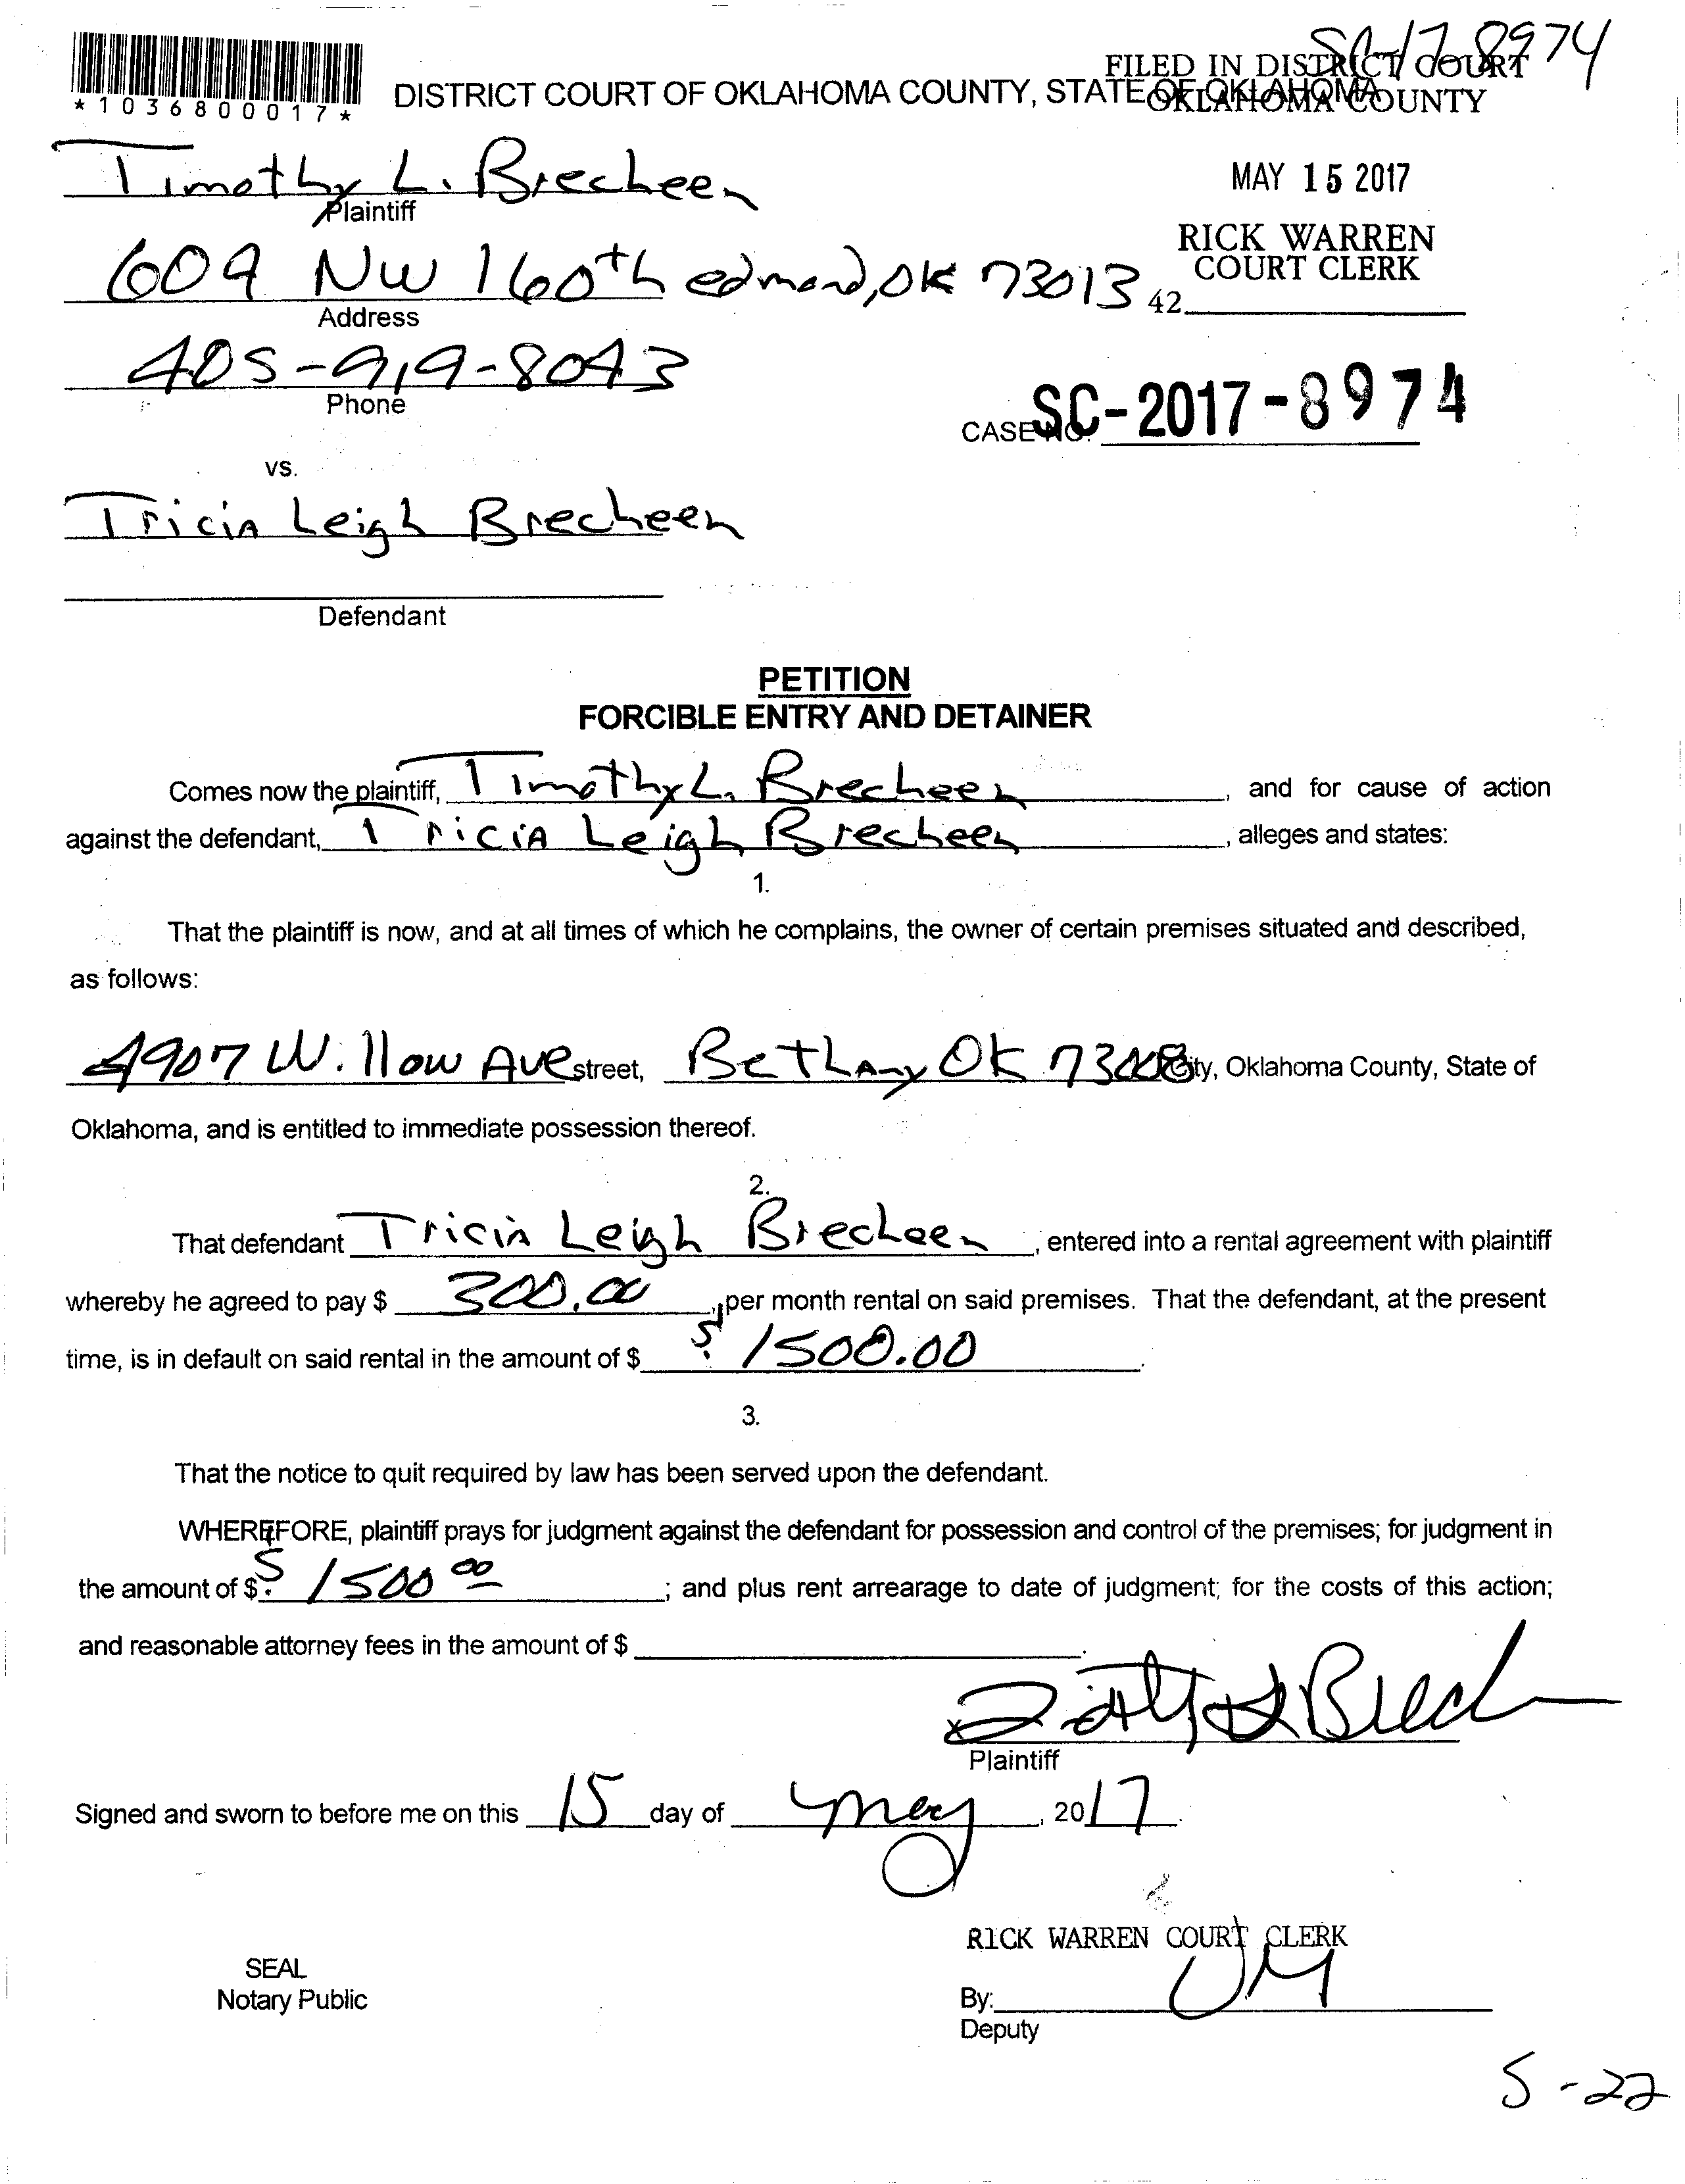 SC-17-8974
FILED IN DISTRICT COURT
OKLAHOMA COUNTY
*1036800017*
DISTRICT COURT OF OKLAHOMA COUNTY, STATE OF OKLAHOMA
Timothy L. Brecheen
Plaintiff
MAY 15 2017
RICK WARREN
COURT CLERK
609 NW 160th edmond, OK 73013
42
Address
405-919-8043
Phone
CASE NO. SC-2017-8974
vs.
Tricia Leigh Brecheen
Defendant
PETITION
FORCIBLE ENTRY AND DETAINER
Comes now the plaintiff, Timothy L. Brecheen, and for cause of action
against the defendant, Tricia Leigh Brecheen, alleges and states:
1.
That the plaintiff is now, and at all times of which he complains, the owner of certain premises situated and described,
as follows:
4907 Willow Ave street, Bethany OK 73008 City, Oklahoma County, State of
Oklahoma, and is entitled to immediate possession thereof.
2.
That defendant Tricia Leigh Brecheen, entered into a rental agreement with plaintiff
whereby he agreed to pay $ 300.00, per month rental on said premises. That the defendant, at the present
time, is in default on said rental in the amount of $ 1500.00.
3.
That the notice to quit required by law has been served upon the defendant.
WHEREFORE, plaintiff prays for judgment against the defendant for possession and control of the premises; for judgment in
the amount of $ 1500 00; and plus rent arrearage to date of judgment; for the costs of this action;
and reasonable attorney fees in the amount of $
x
Plaintiff
Signed and sworn to before me on this 15 day of May, 2017.
RICK WARREN COURT CLERK
SEAL
Notary Public
By: JM
Deputy
5-22